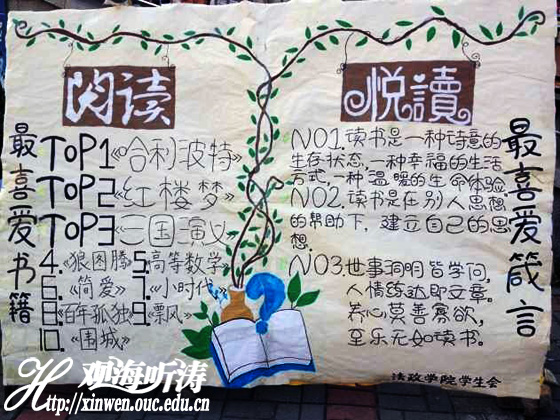 阅读
最喜爱书籍
TOP1《哈利波特》
TOP2《红楼梦》
TOP3《三国演义》
4.《狼图腾》5.《高等数学》
6.《简爱》7.《小时代》
8.《百年孤独》9.《飘风》
10.《围城》
悦讀
NO1.读书是一种诗意的
生存状态,一种幸福的生活
方式,一种温暖的生命体验.
NO2.读书是在别人思想
的帮助下,建立自己的思
想.
NO3.世事洞明皆学问,
人情练达即文章。
养心莫善寡欲,
至乐无如读书。
最喜爱箴言
法政学院学生会
观海听涛
Http://xinwen.ouc.edu.cn